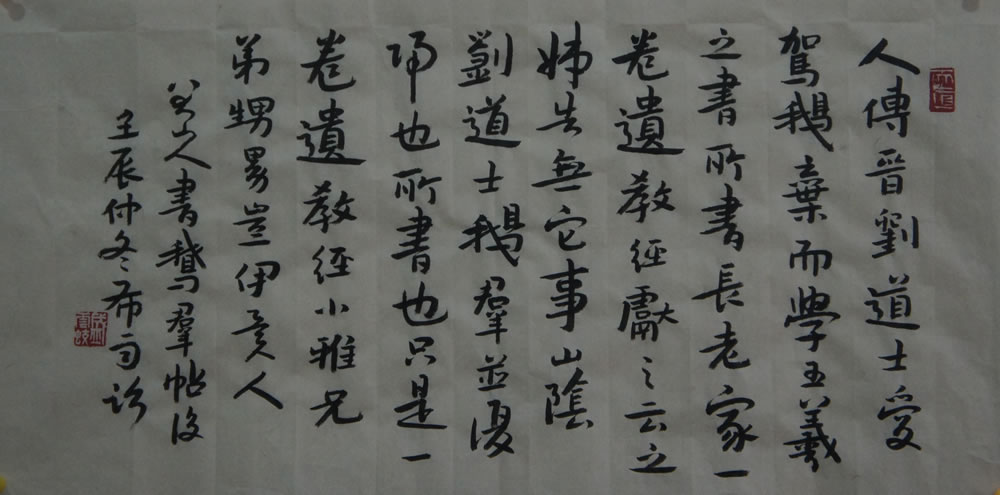 人傳晉劉道士愛
駕鵝棄而學王羲
之書所書長老家一
卷遺教經獻之云之
姊告無它事山陰
劉道士鵝群並復
歸也所書也只是一
卷遺教經小雅兄
弟甥舅豈伊異人
山人書鵝群帖後
壬辰仲冬